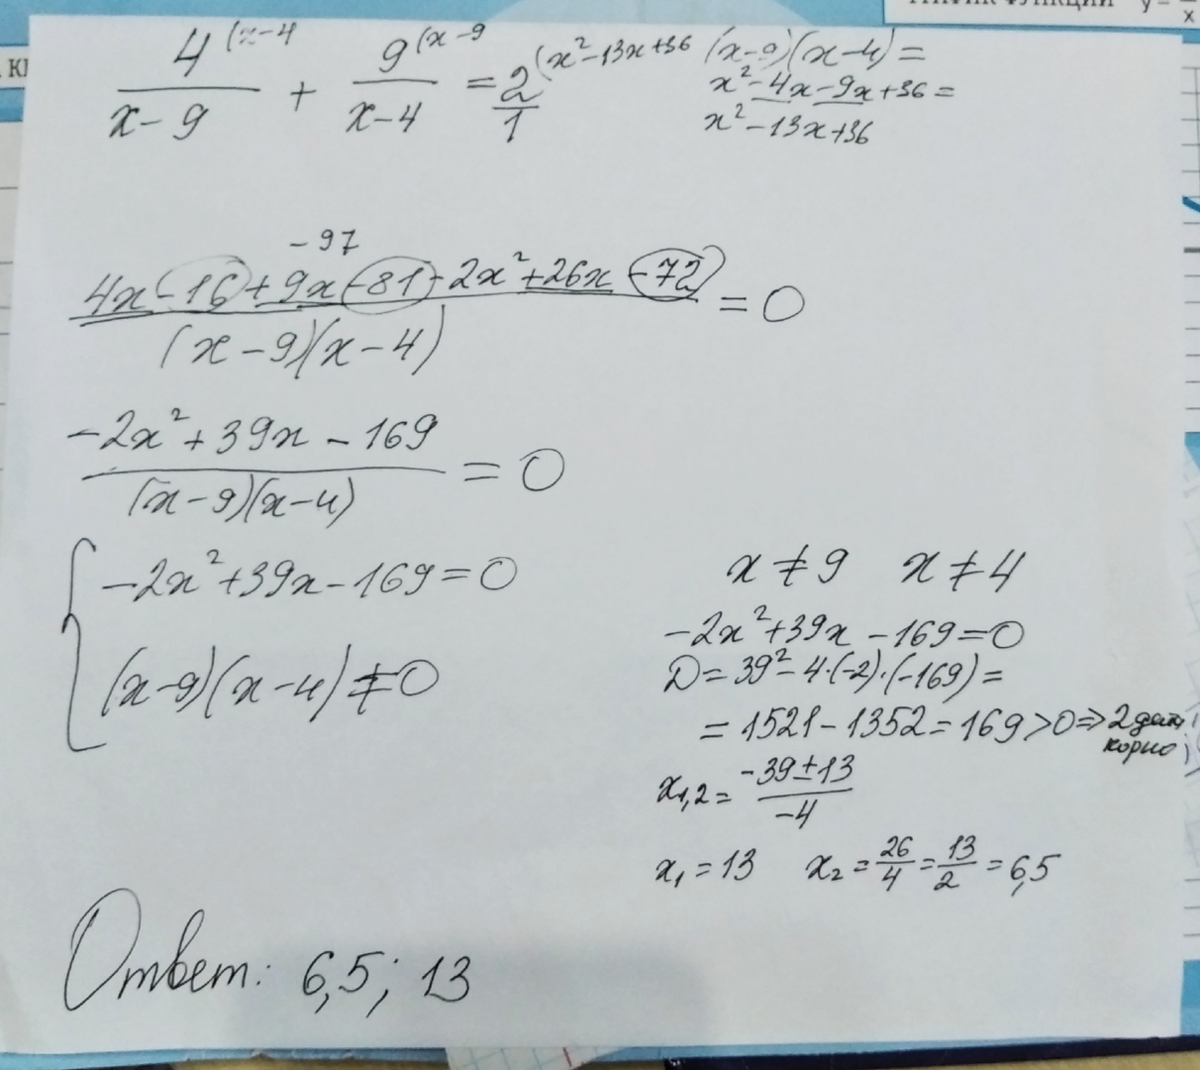 ГРАФИК ФУНКЦИИ y = x
4 (x-4
x-9
+
9 (x-9
x-4
= 2 (x²-13x+36
1
(x-9)(x-4)=
x²-4x-9x+36=
x²-13x+36
-97
4x-16+9x-81-2x²+26x-72
(x-9)(x-4)
= 0
-2x²+39x-169
(x-9)(x-4)
= 0
-2x²+39x-169=0
(x-9)(x-4)≠0
x≠9 x≠4
-2x²+39x-169=0
D=39²-4·(-2)·(-169)=
=1521-1352=169>0=>2
x₁,₂= -39±13
-4
x₁=13 x₂= 26/4 = 13/2 = 6,5
Ответ: 6,5; 13